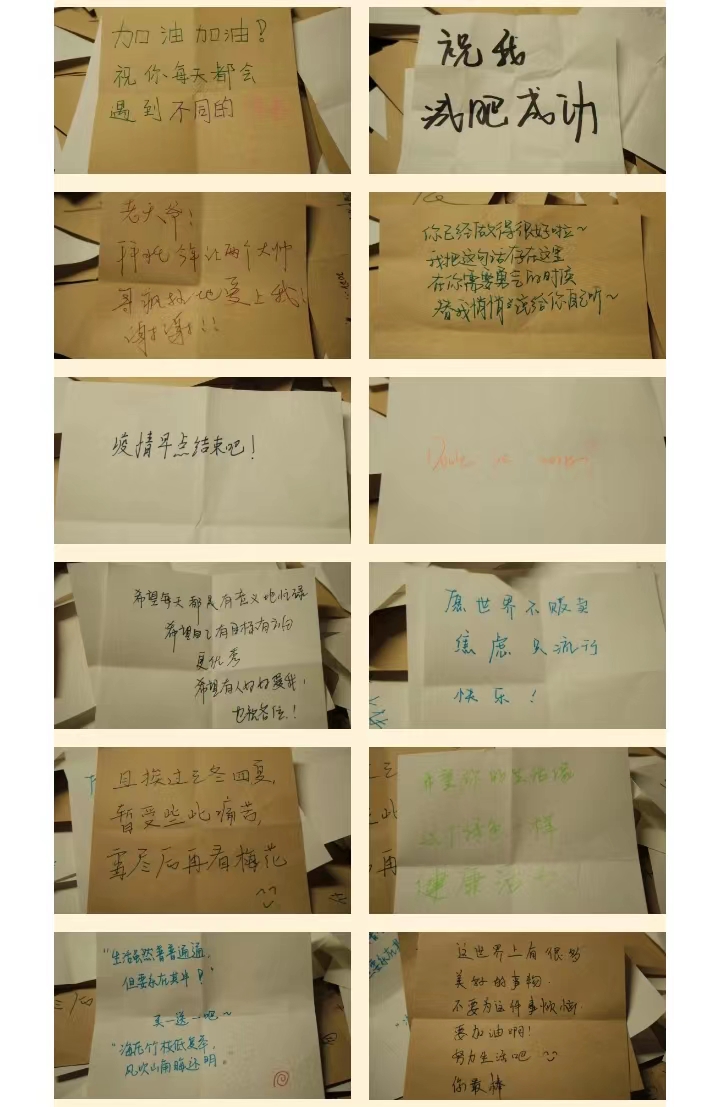 加油加油！
祝你每天都会
遇到不同的
祝我
减肥成功
老天爷！
拜托今年让两个大帅
哥疯狂地爱上我！
谢谢！！！
你已经做得很好啦~
我把这句话存在这里
在你需要勇气的时候
替我悄悄说给你自己听~
疫情早点结束吧！
希望每天都是有意义地忙碌
希望自己有目标有方向
更优秀
希望有人好好爱我，
也祝各位！
愿世界不贩卖
焦虑只流行
快乐！
且挨过三冬四夏，
暂受些此痛苦，
雪尽后再看梅花
希望你的生活像
这个绿色一样
健康
“生活虽然普普通通，
但要乐在其中！”
买一送一吧~
“海压竹枝低复举，
风吹山角晦还明。
这世界上有很多
美好的事物.
不要为这件事烦恼.
要加油啊！
努力生活吧
你最棒